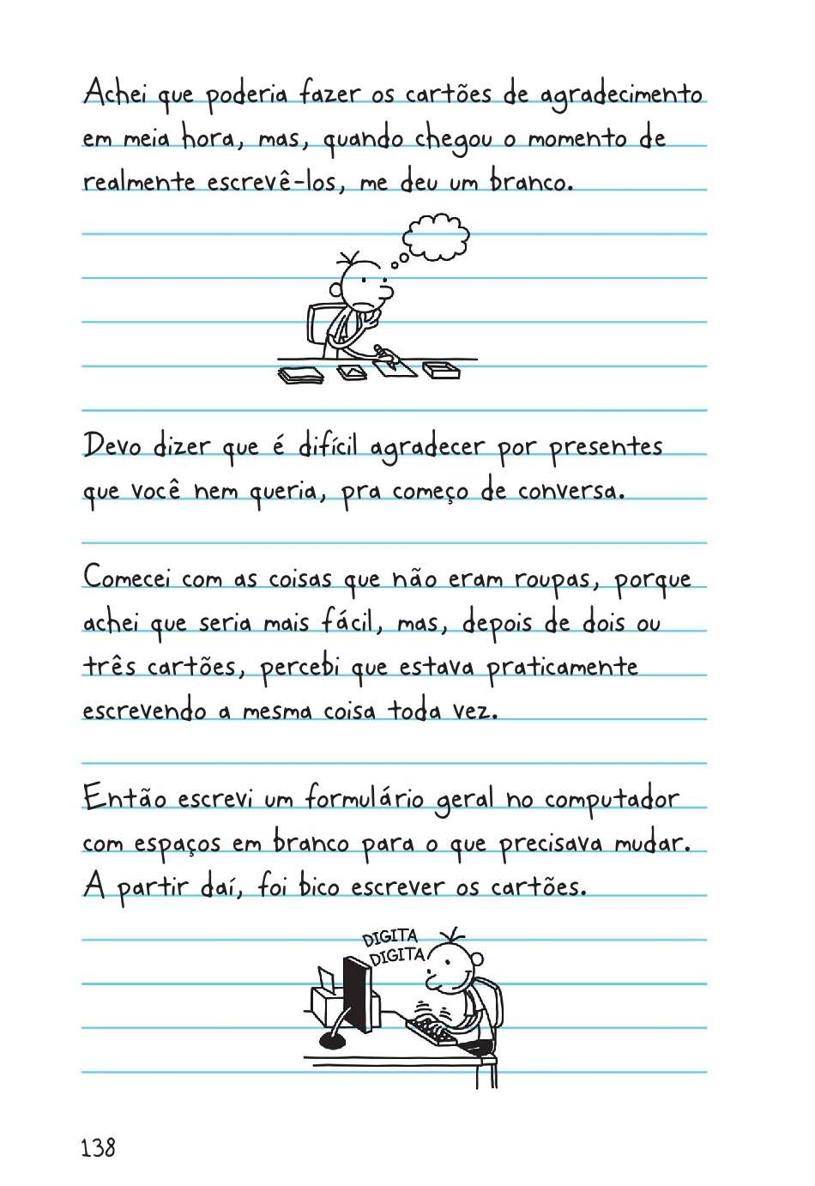 Achei que poderia fazer os cartões de agradecimento
em meia hora, mas, quando chegou o momento de
realmente escrevê-los, me deu um branco.
Devo dizer que é difícil agradecer por presentes
que você nem queria, pra começo de conversa.
Comecei com as coisas que não eram roupas, porque
achei que seria mais fácil, mas, depois de dois ou
três cartões, percebi que estava praticamente
escrevendo a mesma coisa toda vez.
Então escrevi um formulário geral no computador
com espaços em branco para o que precisava mudar.
A partir daí, foi bico escrever os cartões.
DIGITA
DIGITA
138